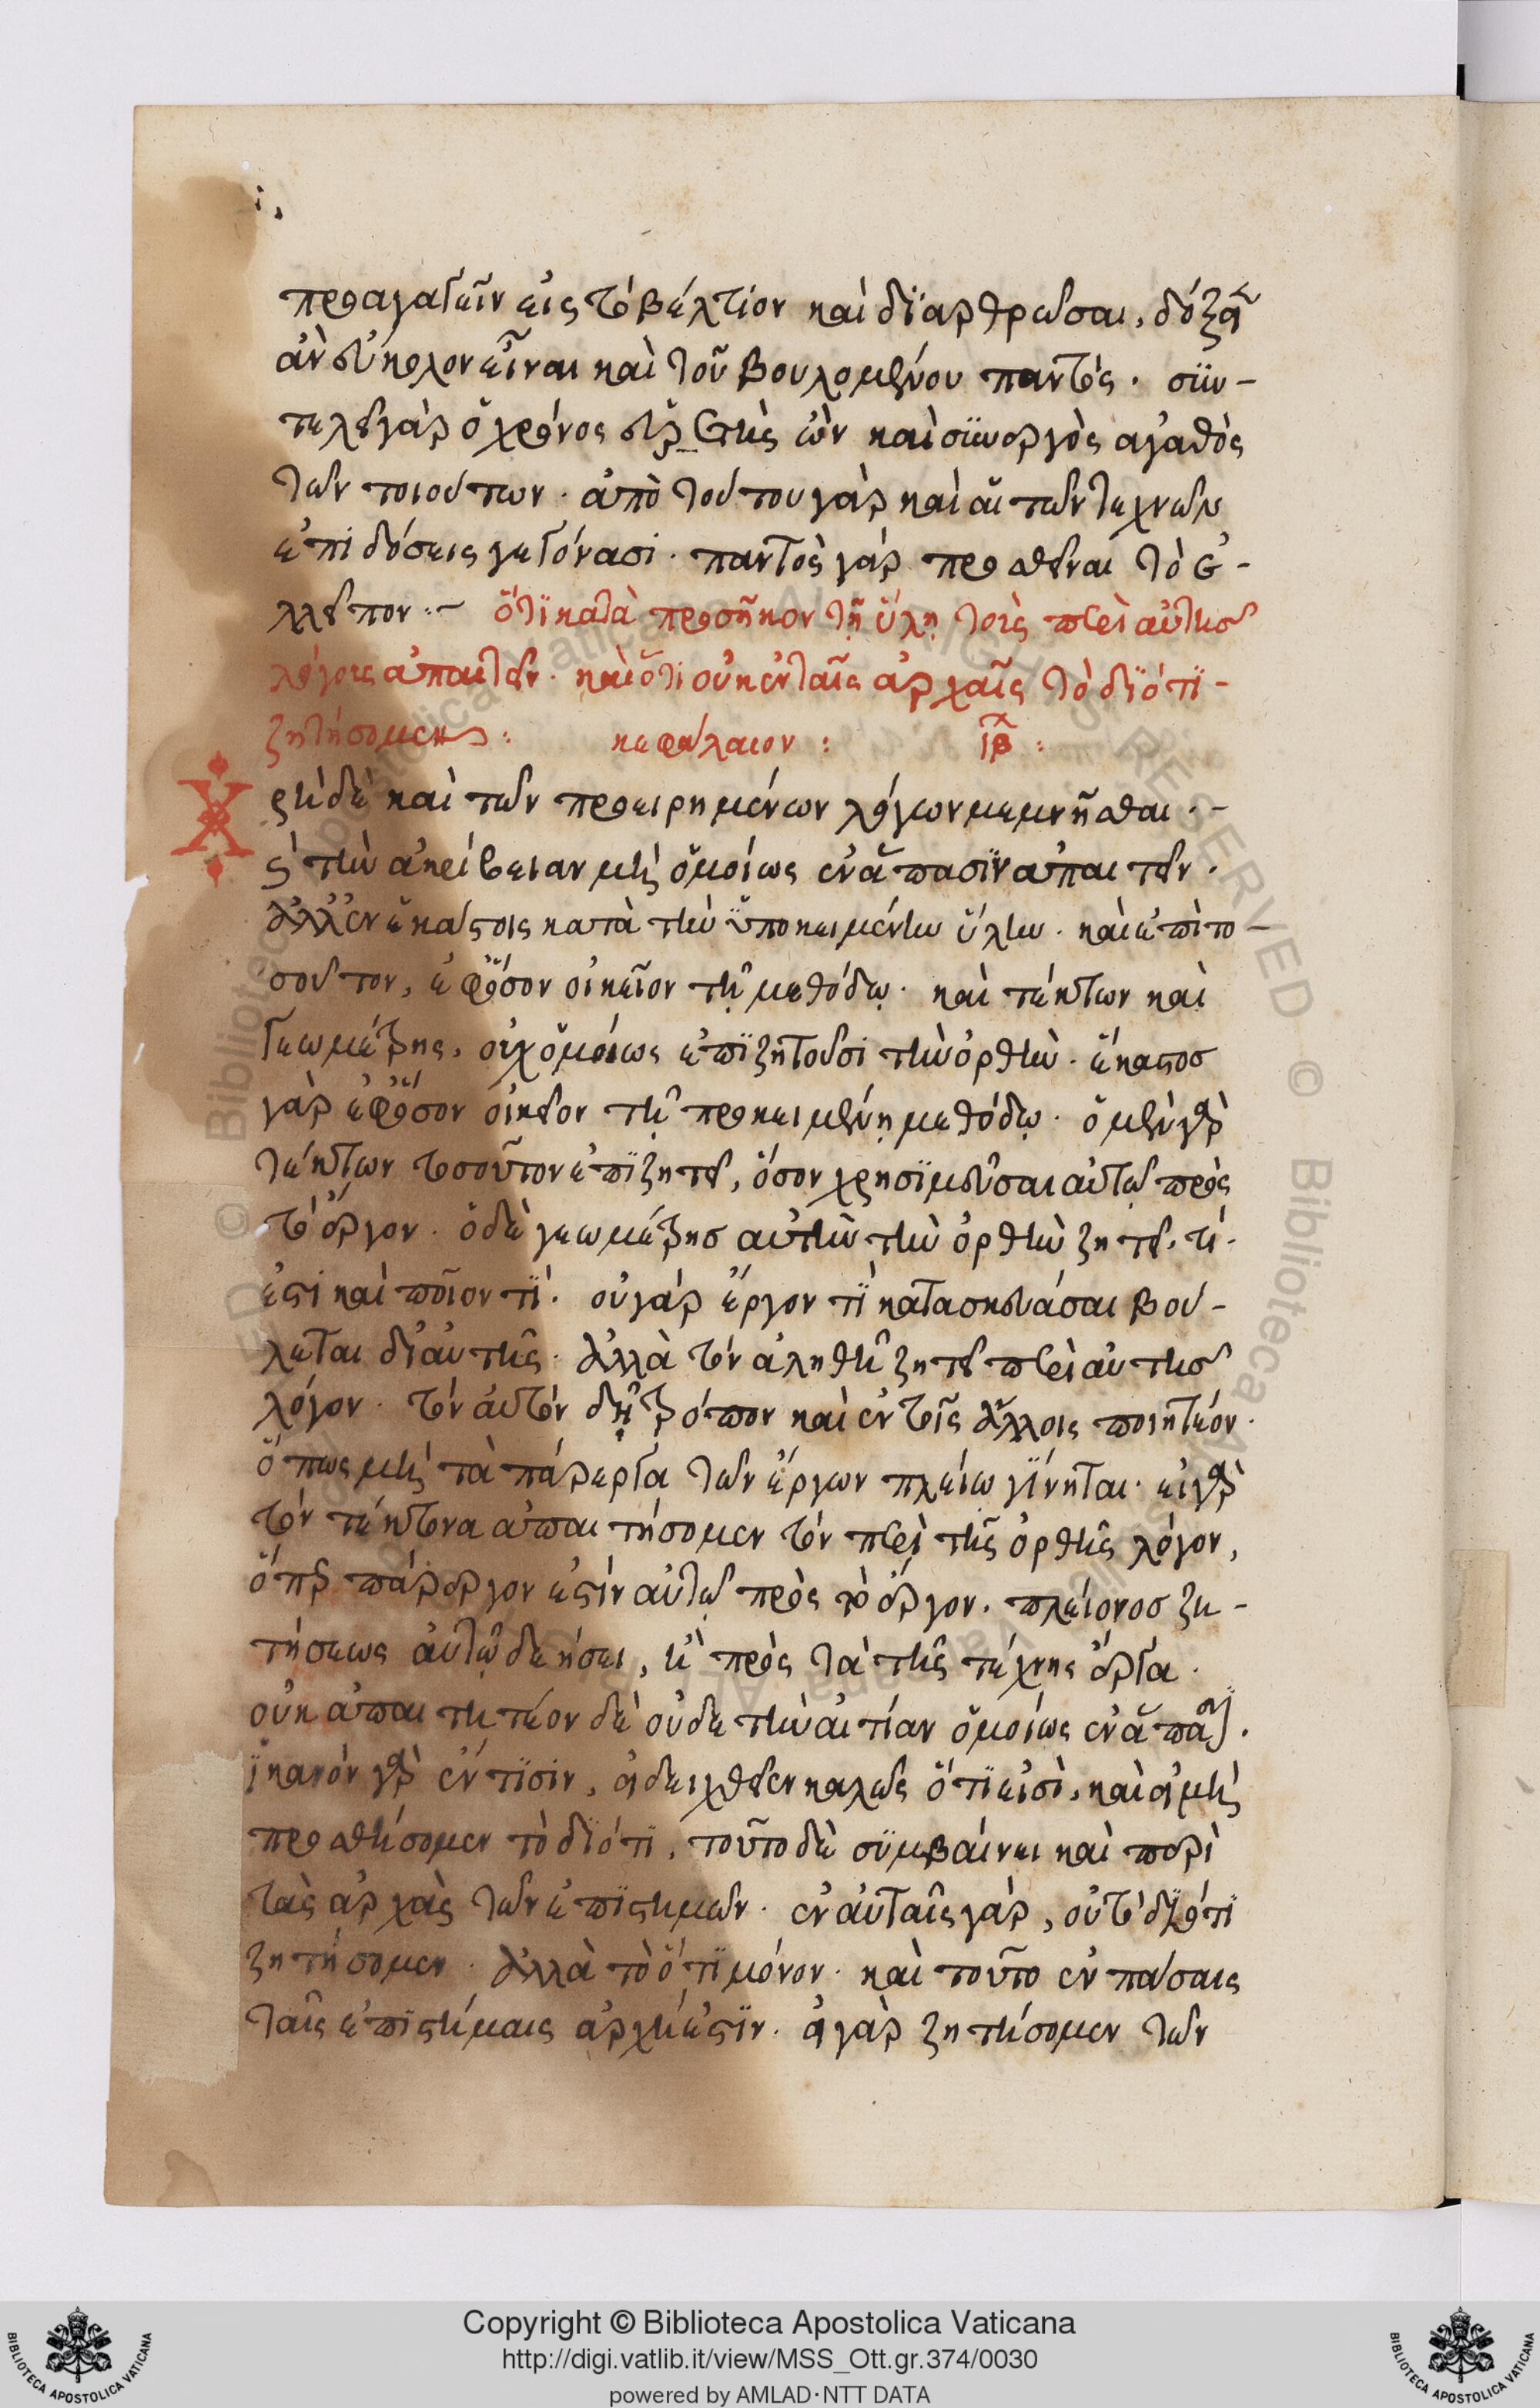 προαγαγεῖν εἰς τὸ βέλτιον καὶ διαρθρῶσαι, δόξαι
ἂν εὔκολον εἶναι καὶ τοῦ βουλομένου παντός. συν-
τελεῖ γὰρ ὁ χρόνος εὑρετὴς ὢν καὶ συνεργὸς ἀγαθὸς
τῶν τοιούτων. ἀπὸ τούτου γὰρ καὶ αἱ τῶν τεχνῶν
ἐπιδόσεις γεγόνασι. παντὸς γὰρ προσθεῖναι τὸ ἐ-
λλεῖπον :~ ὅτι κατὰ προσῆκον τῇ ὕλῃ τοὺς περὶ αὐτῆς
λόγοις ἀπαιτεῖν. καὶ ὅτι οὐκ ἐν ταῖς ἀρχαῖς τὸ διότι-
ζητήσομεν : κεφάλαιον : ιβ :
Χρὴ δὲ καὶ τῶν προειρημένων λόγων μεμνῆσθαι. -
ς τὴν ἀκρίβειαν μὴ ὁμοίως ἐν ἅπασιν ἀπαιτεῖν.
ἀλλ' ἐν ἑκάστοις κατὰ τὴν ὑποκειμένην ὕλην. καὶ ἐπὶ το-
σοῦτον, ἐφ' ὅσον οἰκεῖον τῇ μεθόδῳ. καὶ τέκτων καὶ
γεωμέτρης, οὐχ ὁμοίως ἐπιζητοῦσι τὴν ὀρθήν. ἕκαστος
γὰρ ἐφ' ὅσον οἰκεῖον τῇ προκειμένῃ μεθόδῳ. ὁ μὲν γὰρ
τέκτων τοσοῦτον ἐπιζητεῖ, ὅσον χρησιμεῦσαι αὐτῷ πρὸς
τὸ ἔργον. ὁ δὲ γεωμέτρης αὐτὴν τὴν ὀρθὴν ζητεῖ, τί-
ἐστι καὶ ποῖον τί. οὐ γάρ ἔργον τὶ κατασκευάσαι βού-
λεται δι' αὐτῆς. ἀλλὰ τὸν ἀληθῆ ζητεῖ περὶ αὐτῆς
λόγον. τὸν αὐτὸν δὴ τρόπον καὶ ἐν τοῖς ἄλλοις ποιητέον.
ὅπως μὴ τὰ πάρεργα τῶν ἔργων πλείω γίνηται. εἰ γὰρ
τὸν τέκτονα ἀπαιτήσομεν τὸν περὶ τῆς ὀρθῆς λόγον,
ὅπερ πάρεργον ἐστὶν αὐτῷ πρὸς τὸ ἔργον. πλείονος ζη-
τήσεως αὐτῷ δεήσει, ἢ πρὸς τὰ τῆς τέχνης ἔργα.
οὐκ ἀπαιτητέον δὲ οὐδὲ τὴν αἰτίαν ὁμοίως ἐν ἅπασι.
ἱκανὸν γὰρ ἔν τισιν, εἰ δειχθεῖεν καλῶς ὅτι εἰσὶ, καὶ εἰ μὴ
προσθήσομεν τὸ διότι, τοῦτο δὲ συμβαίνει καὶ περὶ
τὰς ἀρχὰς τῶν ἐπιστημῶν. ἐν αὐταῖς γὰρ, οὐ τὸ διότι
ζητήσομεν. ἀλλὰ τὸ ὅτι μόνον. καὶ τοῦτο ἐν πάσαις
ταῖς ἐπιστήμαις ἀρχή ἐστιν. εἰ γὰρ ζητήσομεν τῶν
Copyright © Biblioteca Apostolica Vaticana
http://digi.vatlib.it/view/MSS_Ott.gr.374/0030
powered by AMLAD·NTT DATA